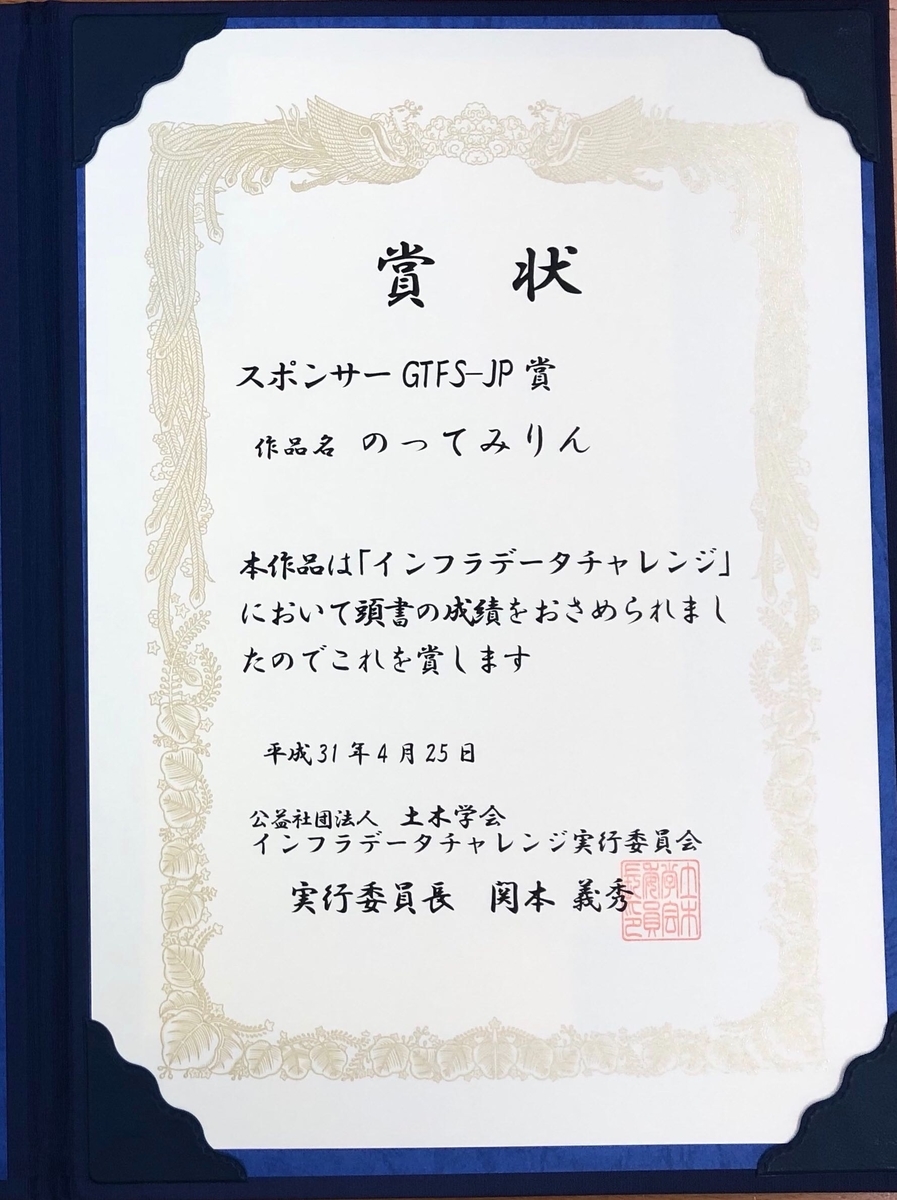 賞 状
スポンサー GTFS-JP 賞
作品名 のってみりん
本作品は「インフラデータチャレンジ」
において頭書の成績をおさめられまし
たのでこれを賞します
平成31年4月25日
公益社団法人 土木学会
インフラデータチャレンジ実行委員会
実行委員長 関本 義秀
土木
学会
委員
長印